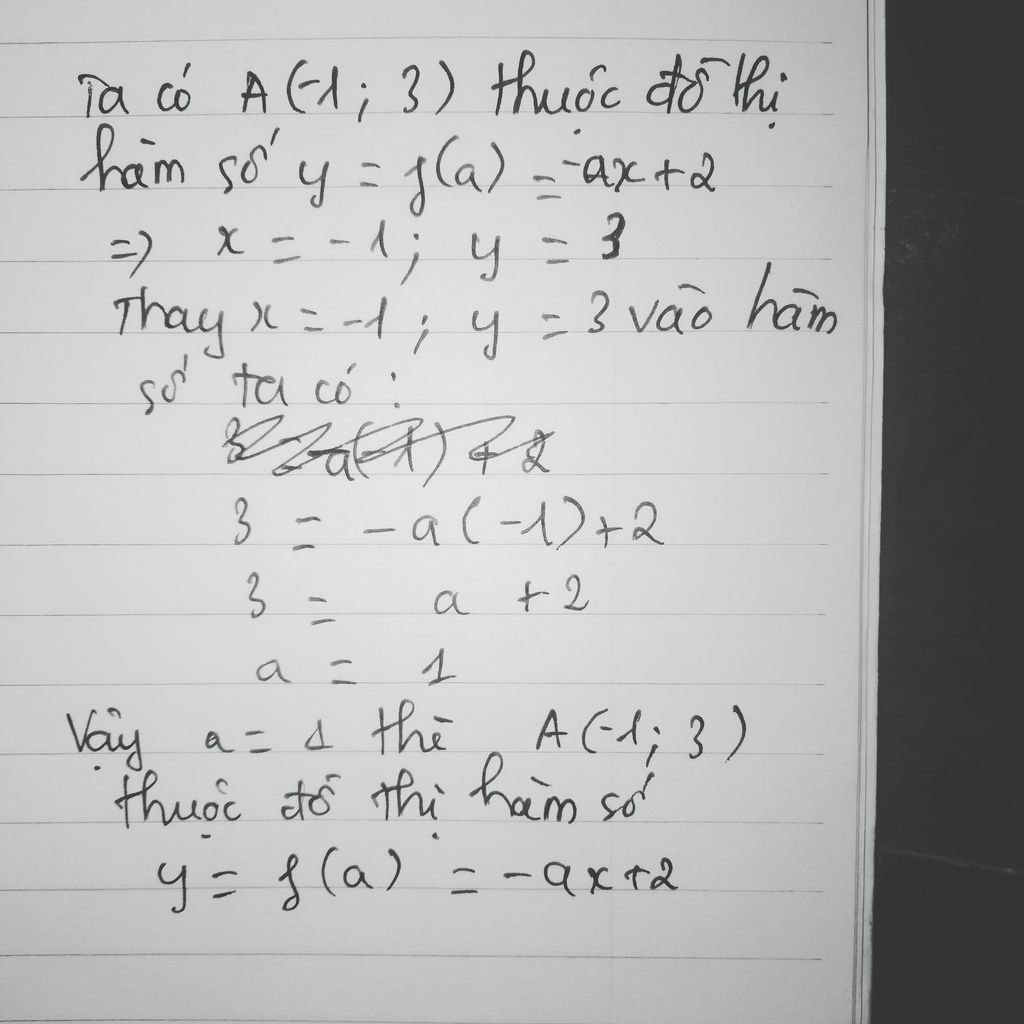 Ta có A(-1; 3) thuộc đồ thị
hàm số y = f(a) = -ax+2
=> x = -1; y = 3
Thay x = -1; y = 3 vào hàm
số ta có:
3 = -a(-1) + 2
3 = a + 2
a = 1
Vậy a = 1 thì A(-1; 3)
thuộc đồ thị hàm số
y = f(a) = -ax+2